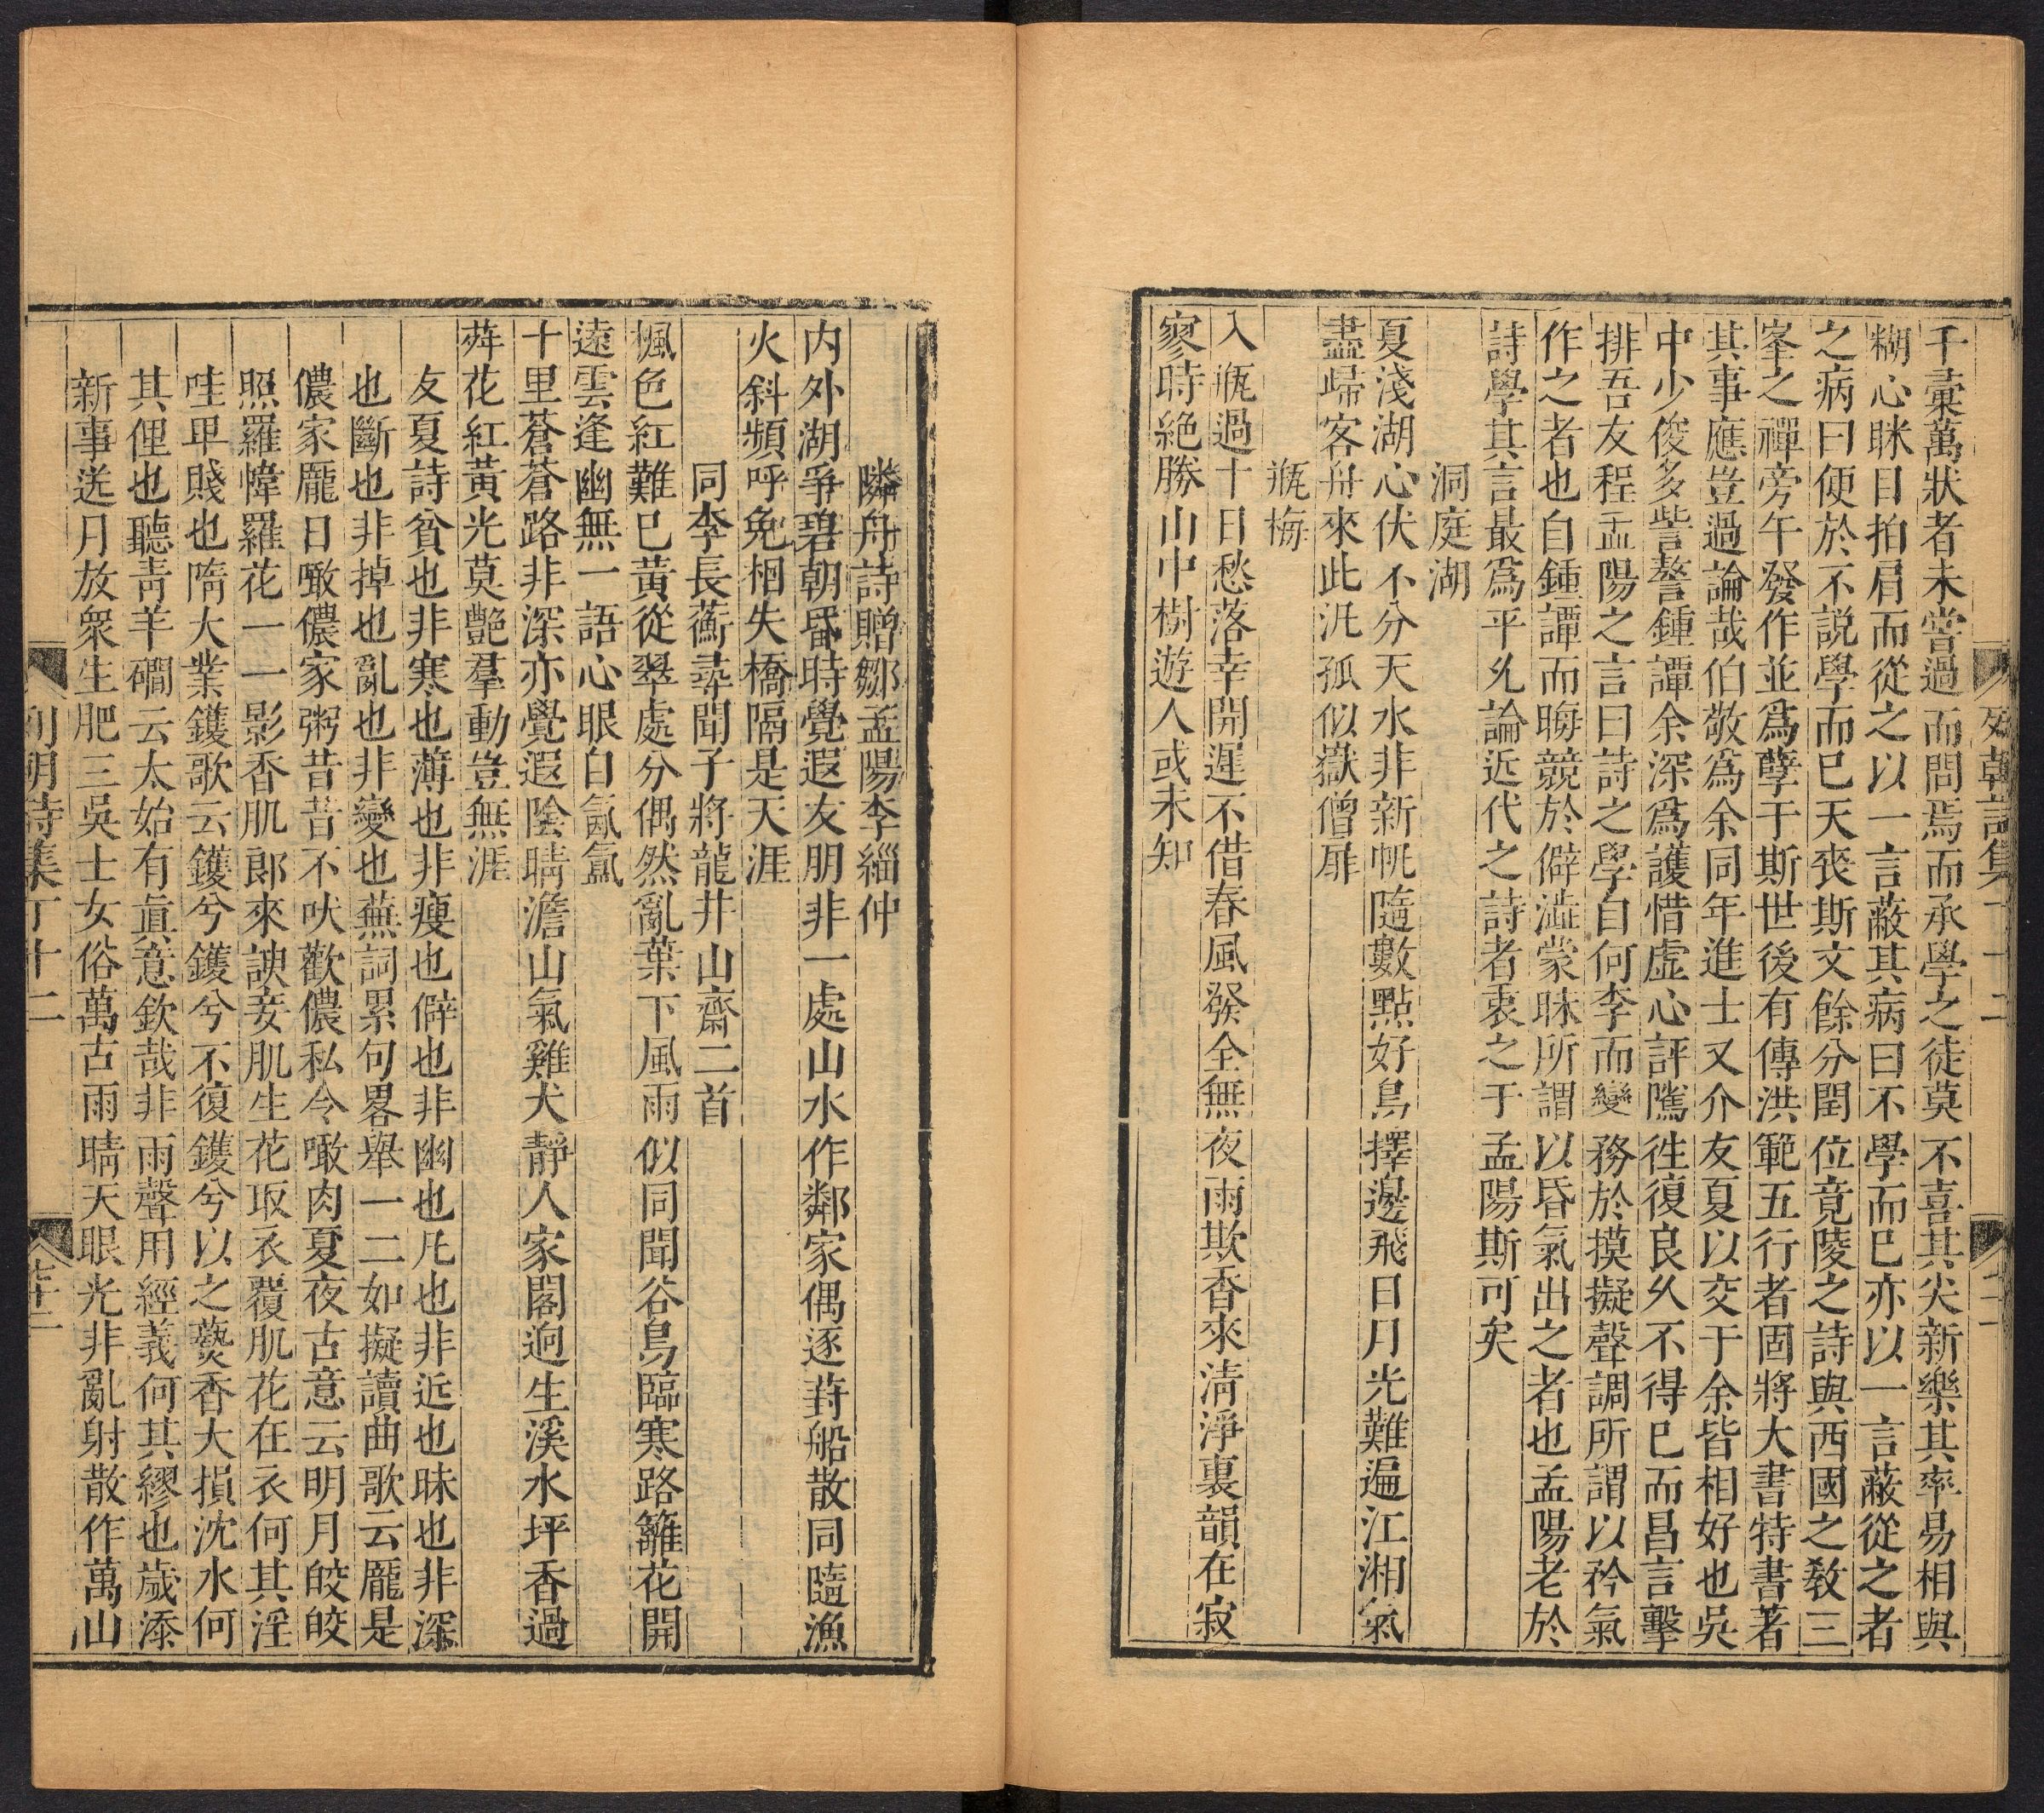 千彙萬狀者未嘗過而問焉而承學之徒莫不喜其尖新樂其率易相與
糊心眯目拍肩而從之以一言蔽其病曰不學而巳亦以一言蔽從之者
之病曰便於不說學而巳天喪斯文餘分閏位竟陵之詩與西國之敎三
峯之禪旁午發作並爲孽于斯世後有傳洪範五行者固將大書特書著
其事應豈過論哉伯敬爲余同年進士又介友夏以交于余皆相好也吳
中少俊多訾謷鍾譚余深爲護惜虛心評隲徃復良久不得巳而昌言擊
排吾友程孟陽之言曰詩之學自何李而變務於摸擬聲調所謂以矜氣
作之者也自鍾譚而晦競於僻澁蒙昧所謂以昏氣出之者也孟陽老於
詩學其言最爲平允論近代之詩者衷之于孟陽斯可矣
洞庭湖
夏淺湖心伏不分天水非新帆隨數點好鳥擇邊飛日月光難遍江湘氣
盡歸客舟來此汎孤似嶽僧扉
瓶梅
入瓶過十日愁落幸開遲不借春風發全無夜雨欺香來清淨裏韻在寂
寥時絶勝山中樹遊人或未知
列朝詩集丁十二
隣舟詩贈鄒孟陽李緇仲
内外湖爭碧朝昏時覺遐友朋非一處山水作鄰家偶逐葑船散同隨漁
火斜頻呼免相失橋隔是天涯
同李長蘅尋聞子將龍井山齋二首
楓色紅難巳黃從翠處分偶然亂葉下風雨似同聞谷鳥臨寒路籬花開
遠雲逢幽無一語心眼白氤氳
十里蒼蒼路非深亦覺遐陰晴澹山氣雞犬靜人家閣迥生溪水坪香過
荈花紅黃光莫艷羣動豈無涯
友夏詩貧也非寒也薄也非瘦也僻也非幽也凡也非近也昧也非深
也斷也非掉也亂也非變也蕪詞累句畧舉一二如擬讀曲歌云龎是
儂家龎日噉儂家粥昔昔不吠歡儂私令噉肉夏夜古意云明月皎皎
照羅幃羅花一一影香肌郎來諛妾肌生花取衣覆肌花在衣何其淫
哇卑賤也隋大業鑊歌云鑊兮鑊兮不復鑊兮以之爇香大損沈水何
其俚也聽靑羊磵云太始有眞意欽哉非雨聲用經義何其繆也歲添
新事送月放衆生肥三吳士女俗萬古雨晴天眼光非亂射散作萬山
列朝詩集丁十二